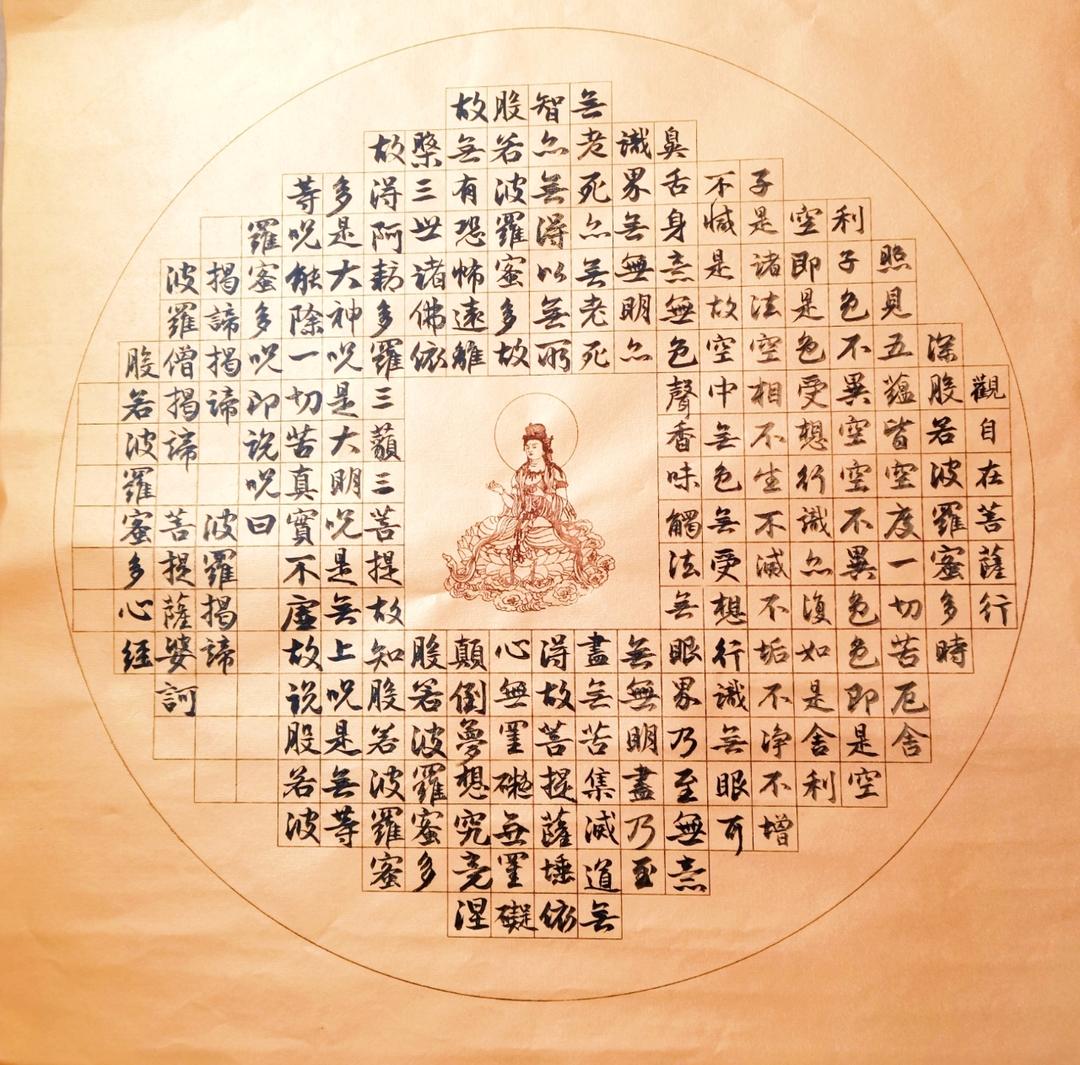 觀自在菩薩行
深般若波羅蜜多時
照見五蘊皆空度一切苦厄舍
利子色不異空空不異色色即是空
空即是色受想行識亦復如是舍利
子是諸法空相不生不滅不垢不净不增
不減是故空中無色無受想行識無眼耳
鼻舌身意無色聲香味觸法無眼界乃至無意
識界無無明亦無無明盡乃至
無老死亦無老死盡無苦集滅道無
智亦無得以無所得故菩提薩埵依
般若波羅蜜多故心無罣礙無罣礙
故無有恐怖遠離顛倒夢想究竟涅
槃三世諸佛依般若波羅蜜多
故得阿耨多羅三藐三菩提故知般若波羅蜜
多是大神呪是大明呪是無上呪是無等
等呪能除一切苦真實不虛故說般若波
羅蜜多呪即說呪曰
揭諦揭諦 波羅揭諦
波羅僧揭諦 菩提薩婆訶
般若波羅蜜多心經